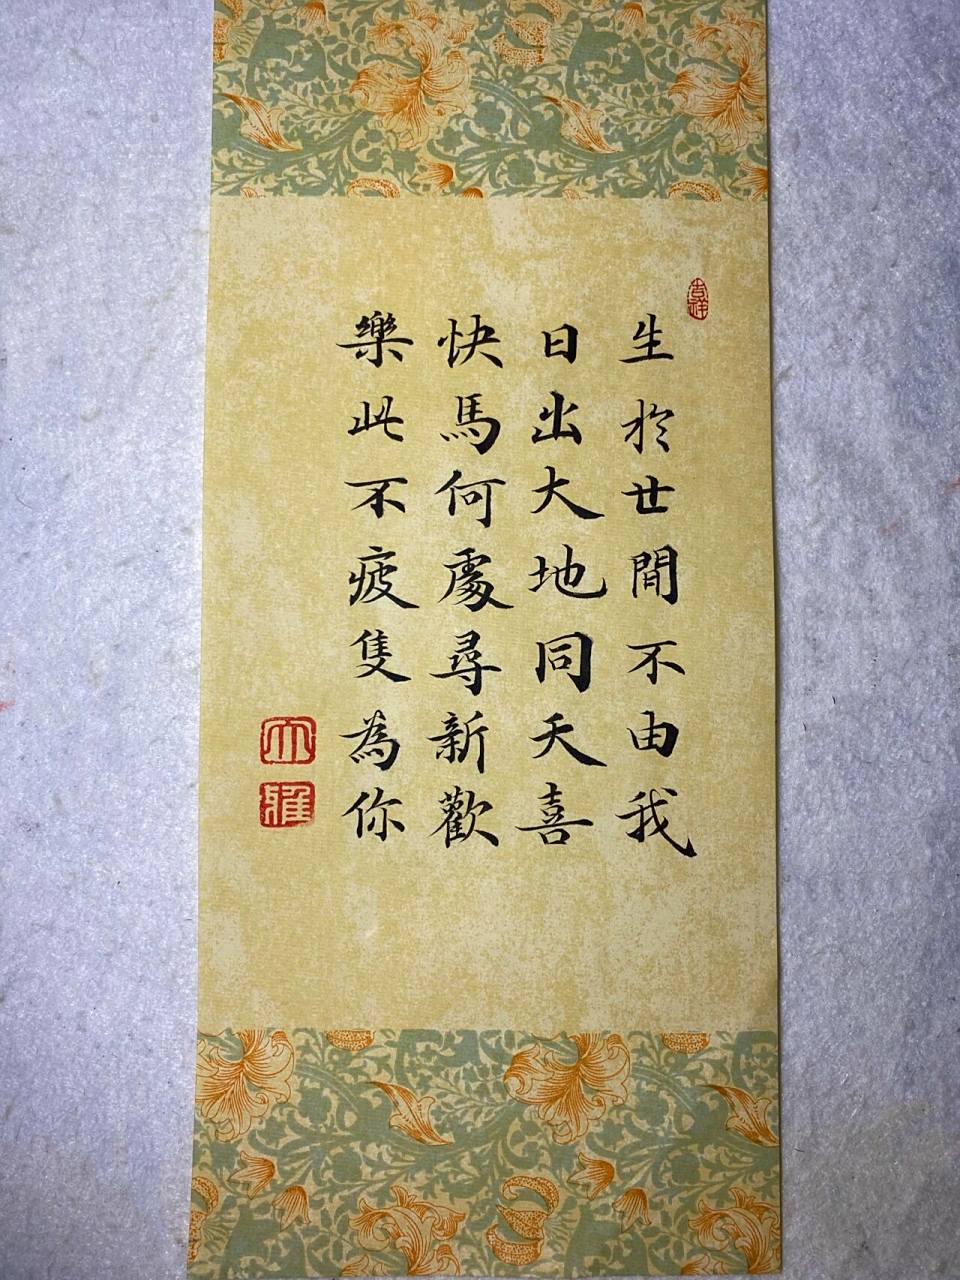 吉祥
生於世間不由我
日出大地同天喜
快馬何處尋新歡
樂此不疲隻為你
大
雅